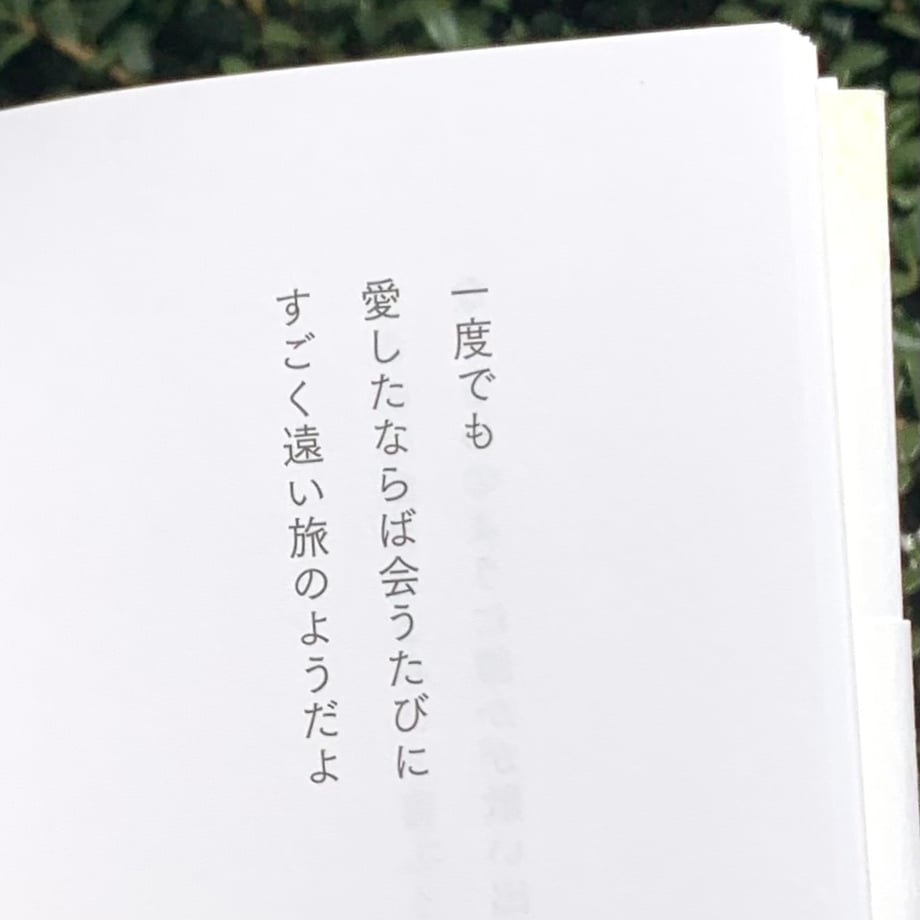 一度でも
愛したならば会うたびに
すごく遠い旅のようだよ